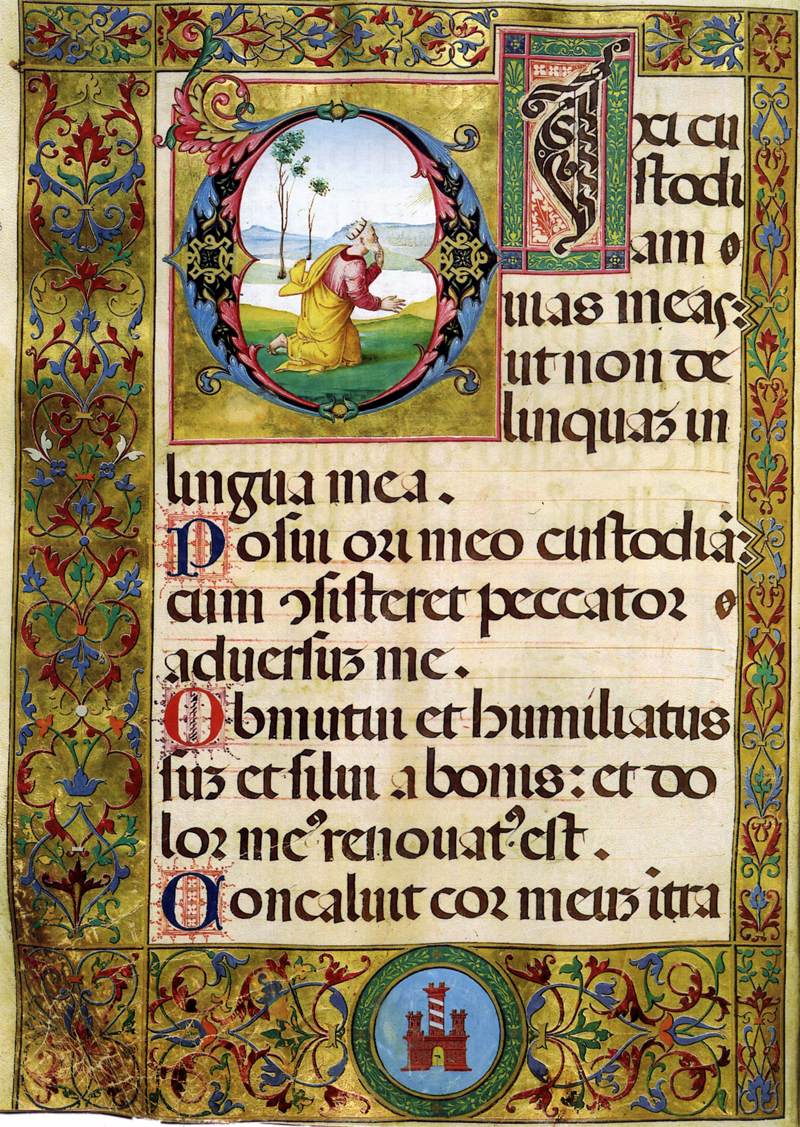 DIxi cu
stodi
am
uias meas:
ut non de
linquaz in
lingua mea.
Posui ori meo custodiā:
cum ↄsisteret peccator
aduersuz me.
Obmutui et humiliatus
suz et silui a bonis: et do
lor meꝰ renouatꝰ est.
Concaluit cor meuz itra